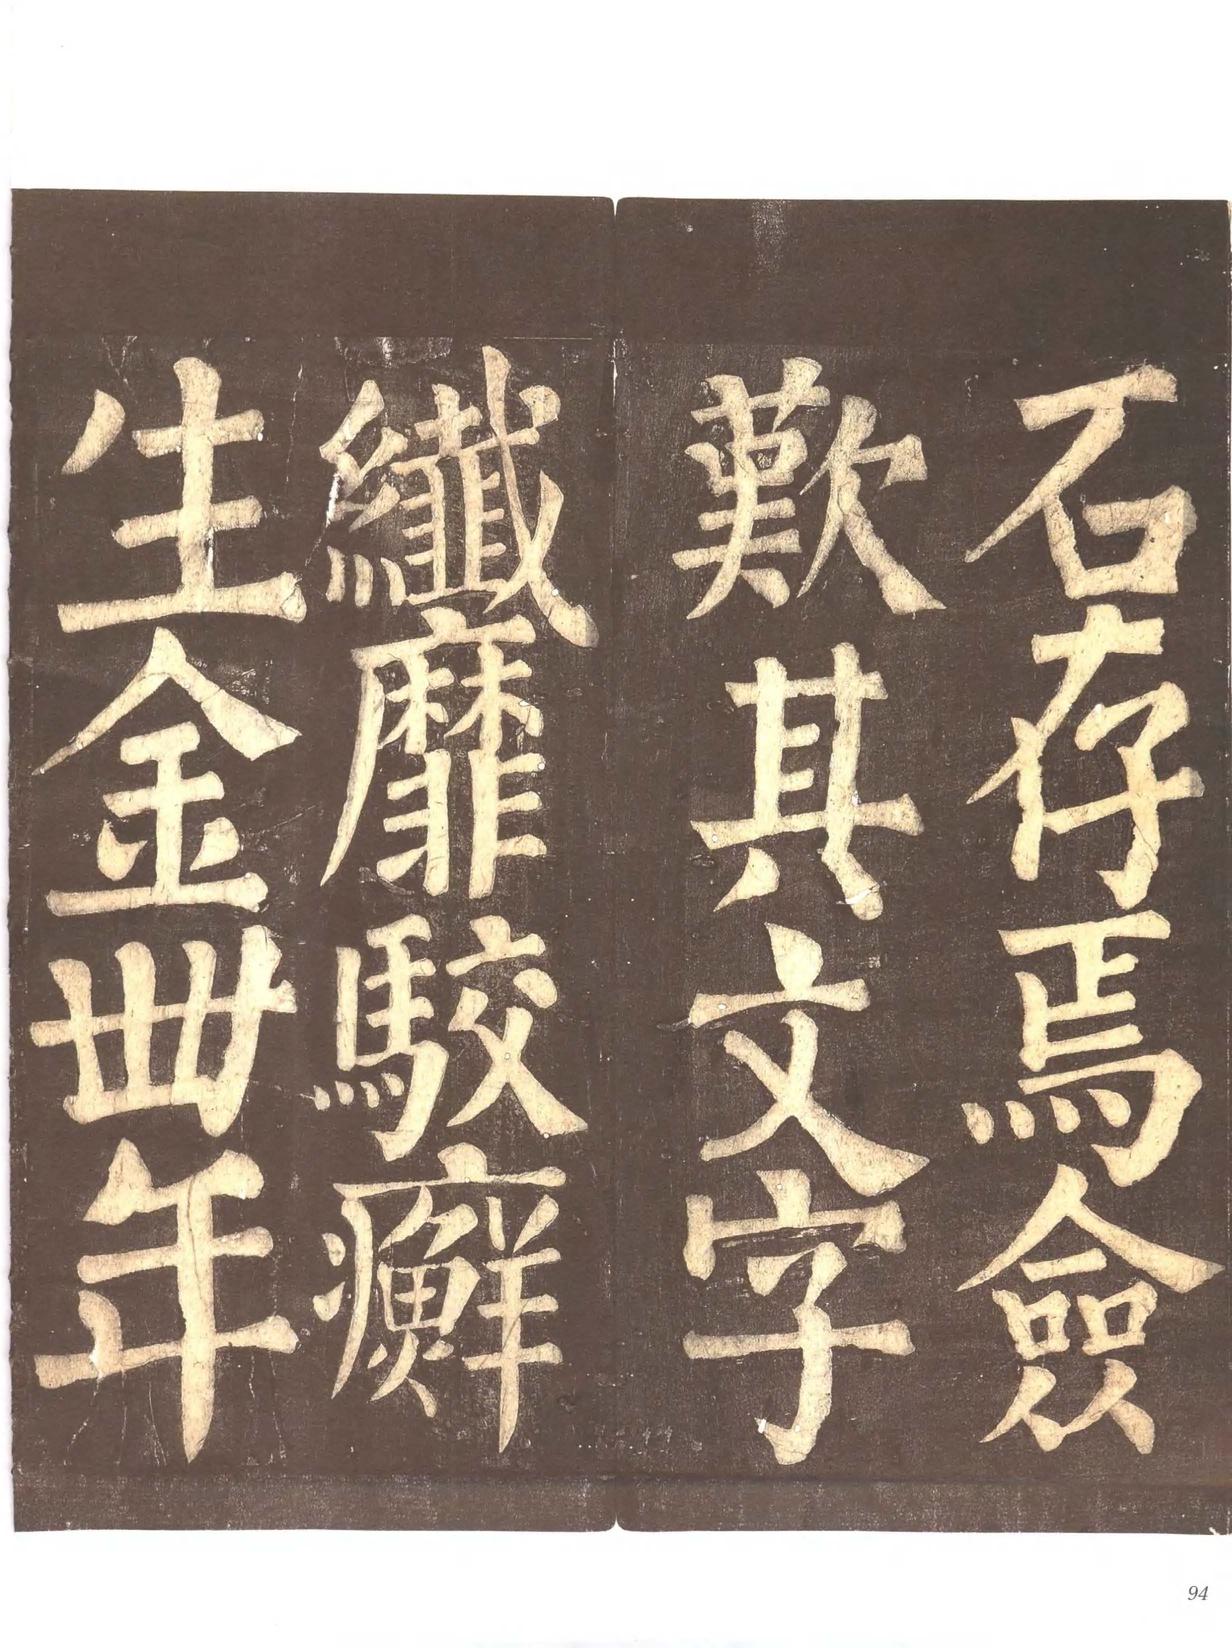 石存焉僉
歎其文字
纖靡駮癬
生金卌年
94